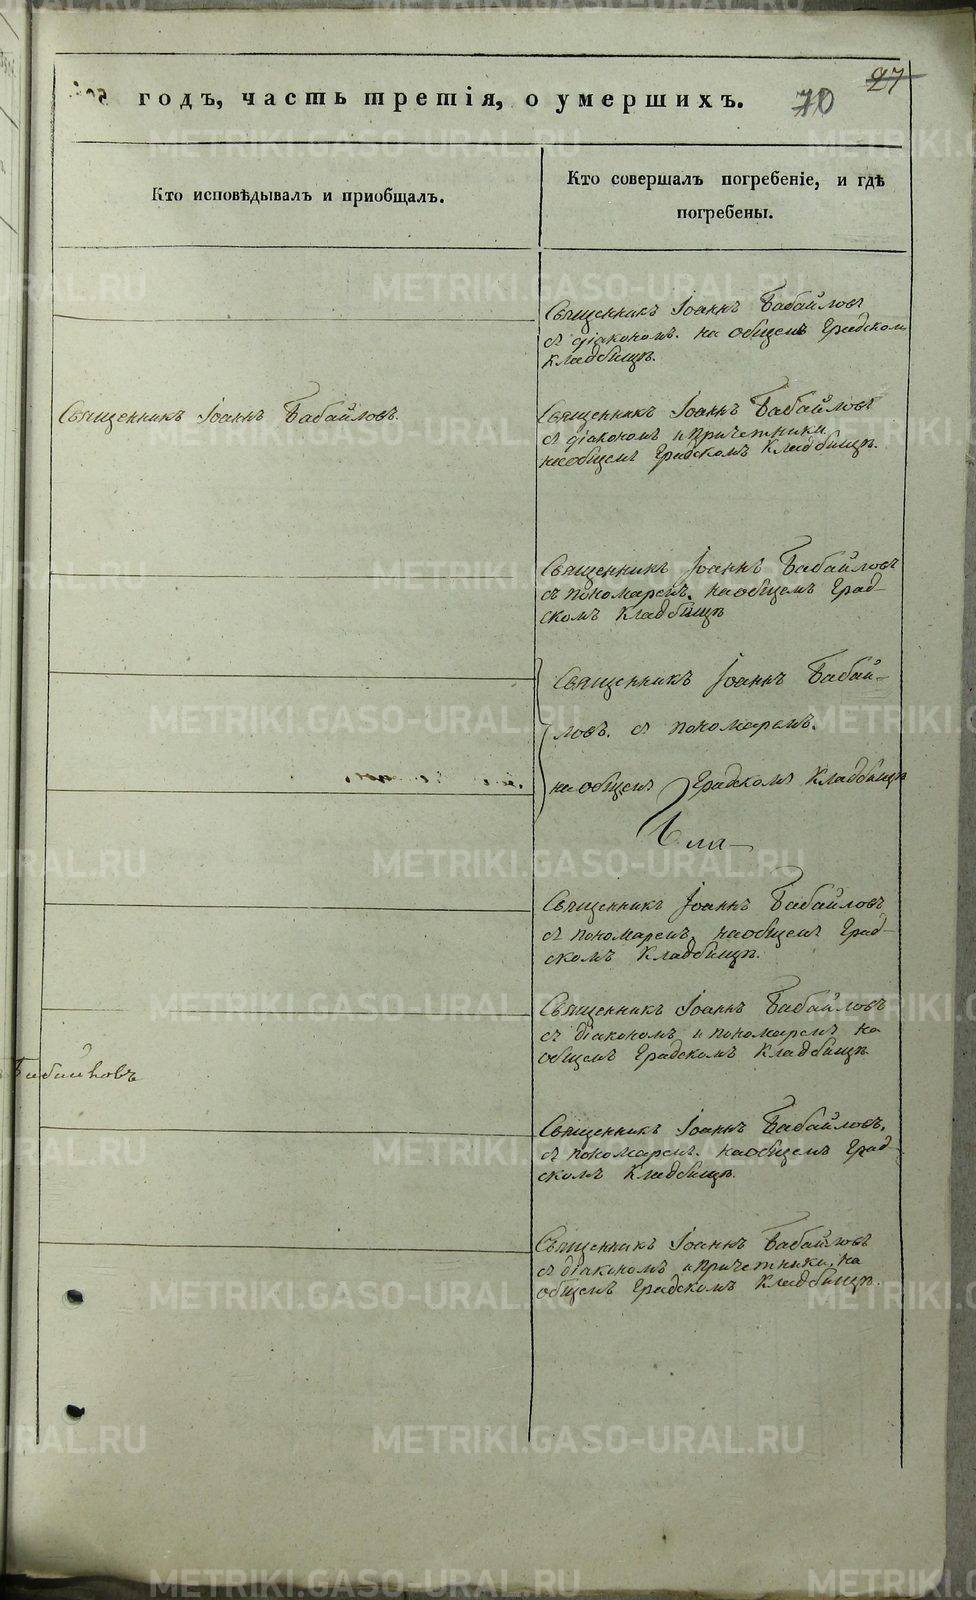 27
годъ, часть третія, о умершихъ. 70
Кто исповѣдывалъ и приобщалъ.
Кто совершалъ погребеніе, и гдѣ
погребены.
Священникъ Іоаннъ Бабайловъ
съ діакономъ. на общемъ Градскомъ
кладбищѣ.
Священникъ Іоаннъ Бабайловъ.
Священникъ Іоаннъ Бабайловъ
съ діакономъ и причетники
на общемъ Градскомъ Кладбищѣ.
Священникъ Іоаннъ Бабайловъ
съ пономаремъ. на общемъ Град-
скомъ Кладбищѣ
Священникъ Іоаннъ Бабай-
ловъ. съ пономаремъ.
на общемъ Градскомъ Кладбищѣ
Священникъ Іоаннъ Бабайловъ
съ пономаремъ. на общемъ Град-
скомъ Кладбищѣ.
Священникъ Іоаннъ Бабайловъ
съ діакономъ и пономаремъ на
общемъ Градскомъ Кладбищѣ.
Священникъ Іоаннъ Бабайловъ.
съ пономаремъ. на общемъ Град-
скомъ Кладбищѣ.
Священникъ Іоаннъ Бабайловъ
съ діакономъ и причетники. на
общемъ Градскомъ Кладбищѣ.
METRIKI.GASO-URAL.RU